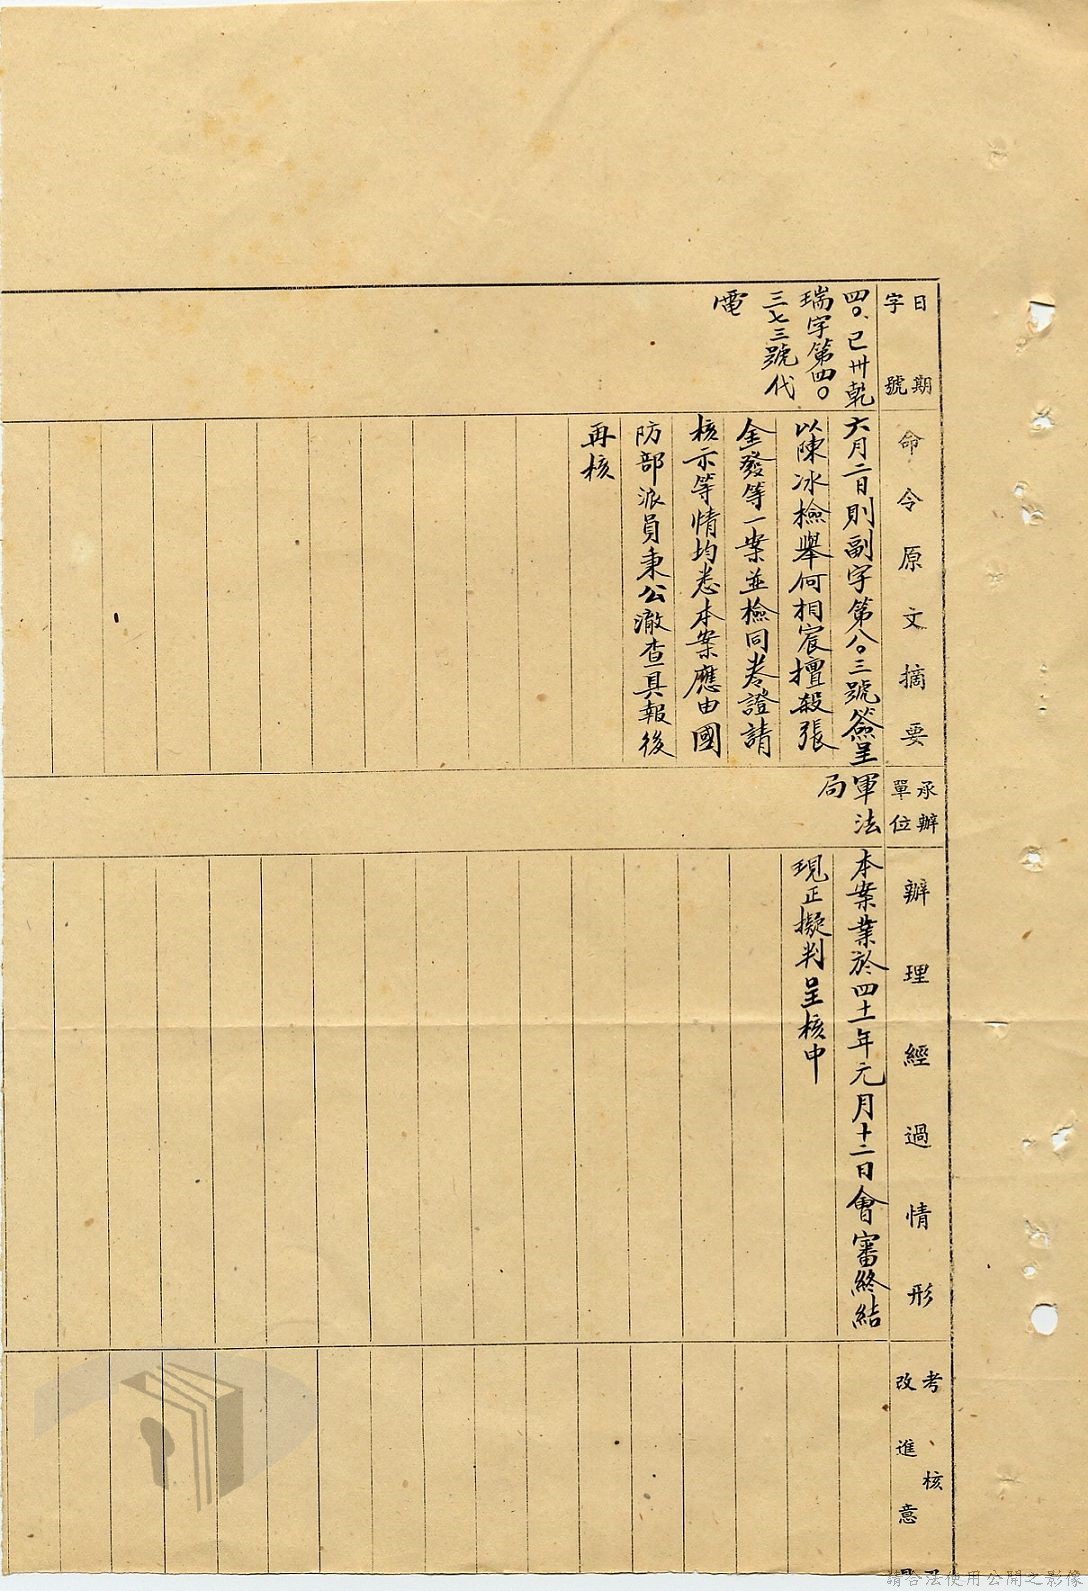 日期
字號
四〇、已卅乾
瑞字第四〇
三七三號代
電
命令原文摘要
六月二日則副字第八〇三號簽呈
以陳冰檢舉何相宸擅殺張
金發等一案並檢同卷證請
核示等情均悉本案應由國
防部派員秉公澈查具報後
再核
承辦
單位
軍法
局
辦理經過情形
本案業於四十一年元月十二日會審終結
現正擬判呈核中
考核
改進意
請合法使用公開之影像